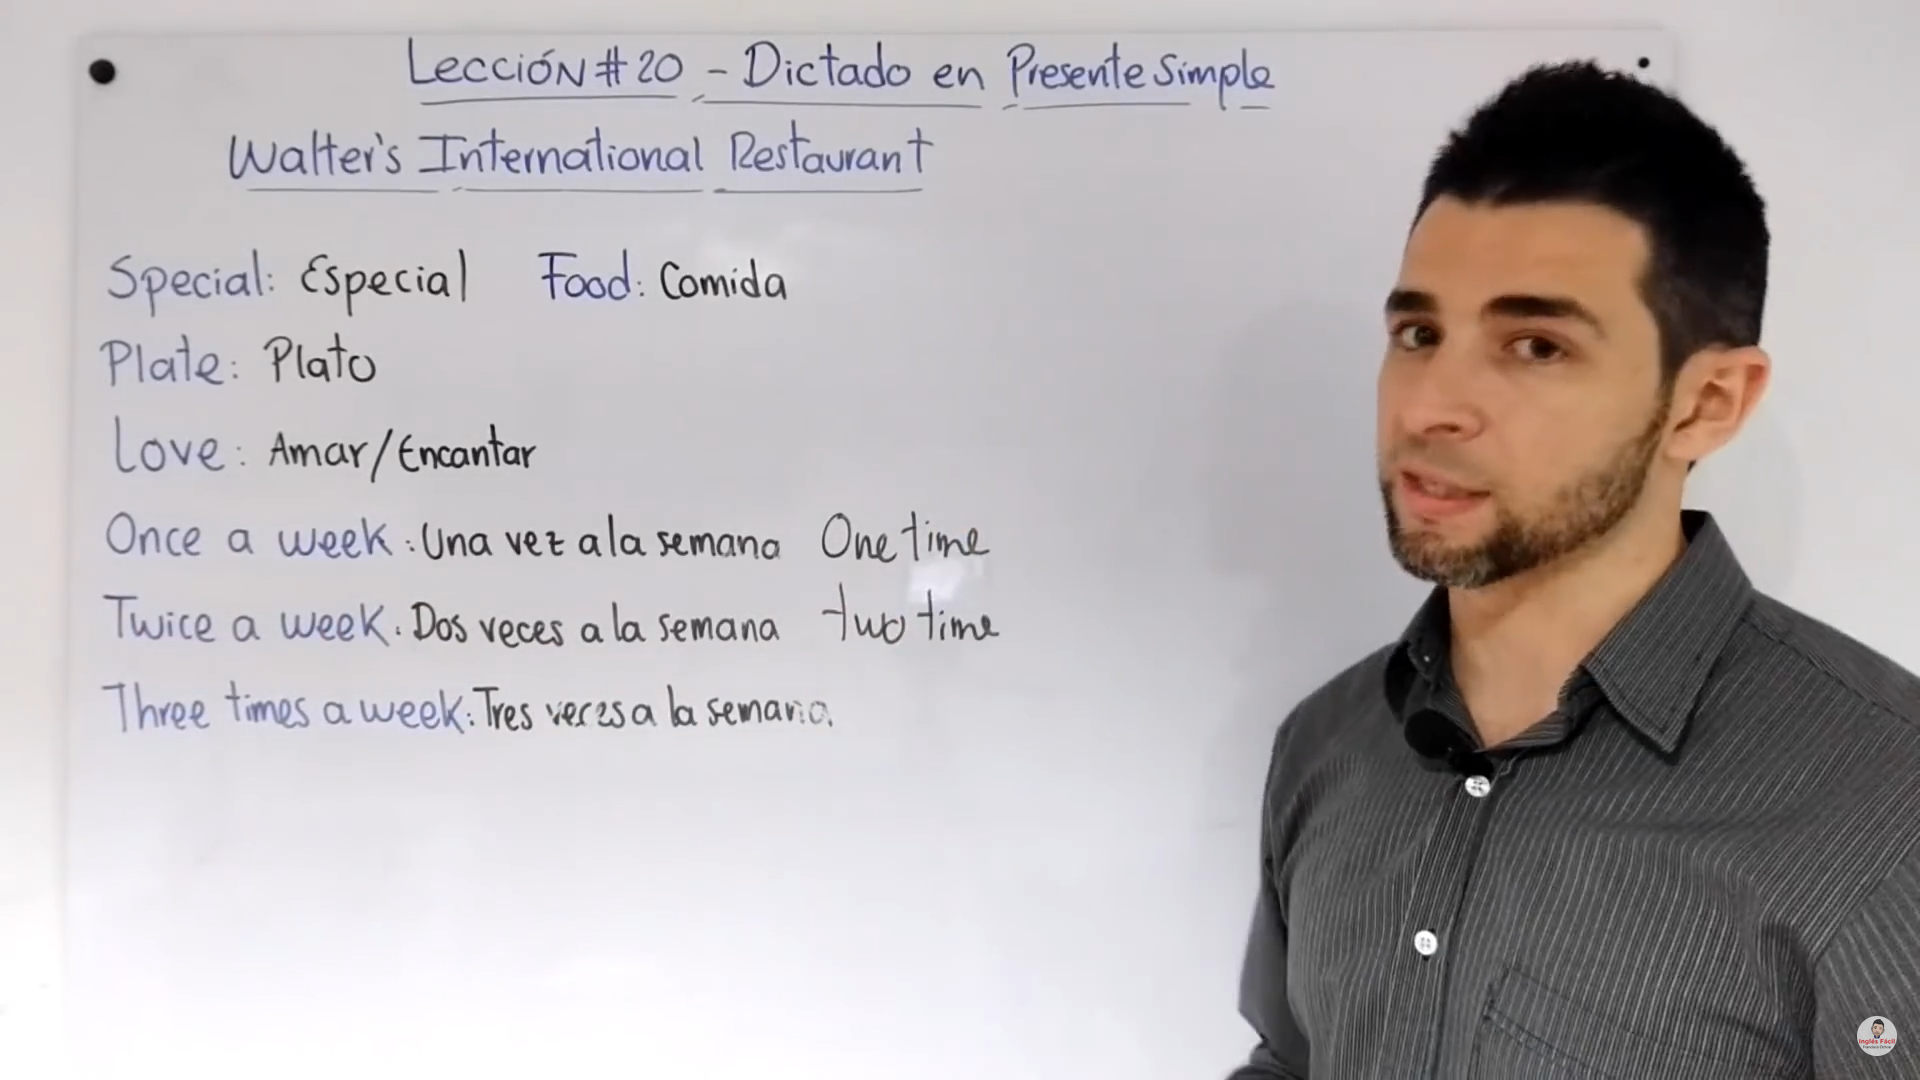 Lección # 20 - Dictado en Presente Simple
Walter's International Restaurant
Special: Especial Food: Comida
Plate: Plato
Love: Amar/Encantar
Once a week: Una vez a la semana One time
Twice a week: Dos veces a la semana two time
Three times a week: Tres veces a la semana
Inglés Fácil